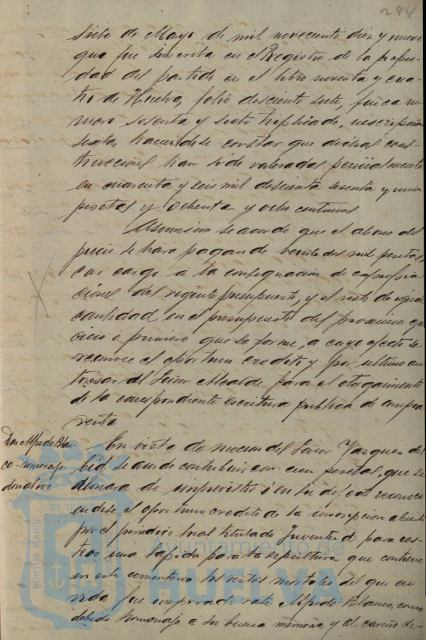 244
siete de Mayo de mil novecientos diez y nueve
que fue inscrita en el Registro de la propie-
dad del partido en el libro noventa y cua-
tro de Huelva, folio doscientos siete, finca nú-
mero sesenta y siete triplicado, inscripción
sexta, haciéndose constar que dichas cons-
trucciones han sido valoradas pericialmente
en cuarenta y seis mil doscientas sesenta y una
pesetas y ochenta y ocho centimos
Asimismo se acordó que el abono del
precio se hará pagando veinte dos mil pesetas
con cargo a la consignación de
del vigente presupuesto, y el resto de
cantidad en el presupuesto del próximo ejer-
cicio o primero que se forme, a cuyo efecto se
reconoce el oportuno credito, y por ultimo au-
torizar al Señor Alcalde para el otorgamiento
de la correspondiente escritura publica de compra
venta
Don Alfredo Blan-
co-homenaje
donativo
En vista de mocion del Señor Vazquez del
Cid, se acordó contribuir con cien pesetas, que se
abonara de imprevistos en su defecto reconoci-
endose el oportuno credito de la suscripcion abierta
por el periódico local titulado Juventud para cos-
tear una lápida para la sepultura que contiene
en este cementerio los restos mortales del que en
vida fue inspirado vate Alfredo Blanco, como
debido homenaje a su buena memoria y al cariño de-
PORTUS MARIS
Ayuntamiento de
HUELVA